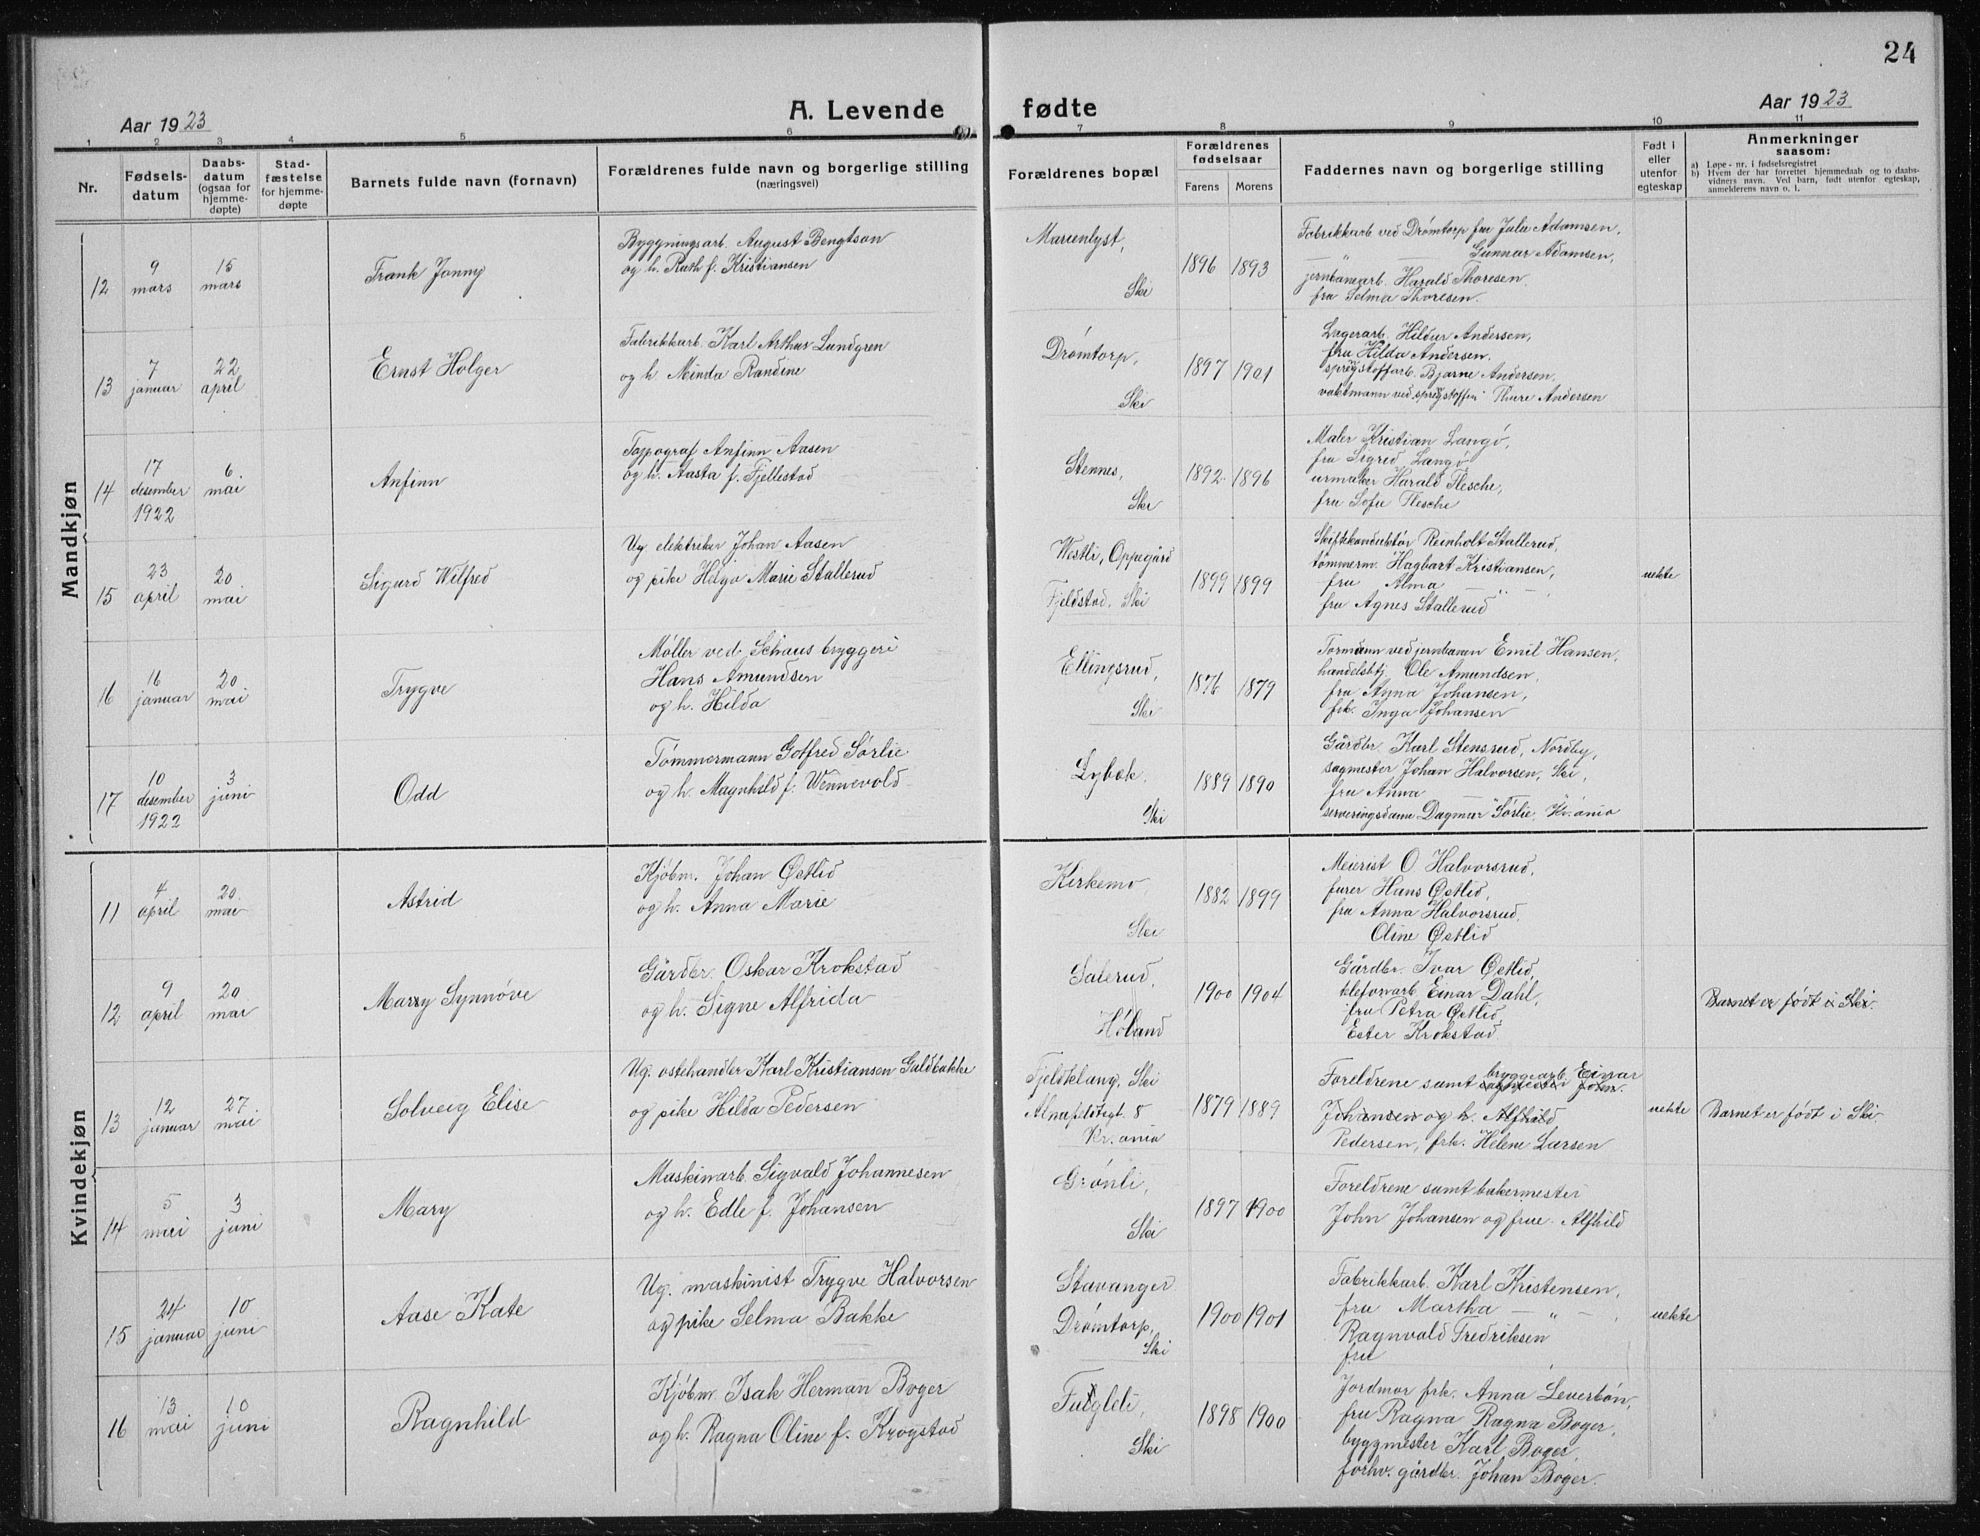 24
A. Levende fødte
Aar 1923
Aar 1923
1 2 3 4 5 6 7 8 9 10 11
Nr.
Fødselsdatum
Daabsdatum (ogsaa for hjemmedøpte)
Stadfæstelse for hjemmedøpte
Barnets fulde navn (fornavn)
Forældrenes fulde navn og borgerlige stilling
(næringsvei)
Forældrenes bopæl
Forældrenes fødselsaar
Farens Morens
Faddernes navn og borgerlige stilling
Født i eller utenfor egteskap
Anmerkninger
saasom:
a) Løpe-nr. i fødselsregistret
b) Hvem der har forrettet hjemmedaab og to daabsvidners navn. Ved barn, født utenfor egteskap, anmelderens navn o. l.
Mandkjøn
12
9 mars
15 mars
Frank Jonny
Byggningsarb. August Bengtson
og h. Ruth f. Kristiansen
Marienlyst,
Ski
1896 1893
Fabrikkarb ved Drømtorp fru Julie Adamsen,
— " — Gunnar Adamsen,
jernbanearb. Harald Thoresen.
fru Selma Thoresen.
13
7 januar
22 april
Ernst Holger
Fabrikkarb. Karl Arthur Lundgren
og h. Minda Randine
Drømtorp,
Ski
1897 1901
Lagerarb. Hildur Andersen,
fru Hilda Andersen.
sprgstoffarb. Bjarne Andersen,
vaktmann ved sprgstoffen Thure Andersen
14
17 desember 1922
6 mai
Anfinn
Typograf Anfinn Aasen
og h. Aasta f. Fjellestad
Stennes,
Ski
1892 1896
Maler Kristian Langø,
fru Sigrid Langø
urmaker Harald Flesche,
fru Sofie Flesche
15
23 april
20 mai
Sigurd Wilfred
Ug elektriker Johan Aasen
og pike Helga Marie Stallerud
Westli, Oppegård
Fjeldstad, Ski
1899 1899
Skiftkonduktør Reinholt Stallerud,
tømmerm. Hagbart Kristiansen,
fru Alma — " —
fru Agnes Stallerud
uekte
16
16 januar
20 mai
Trygve
Møller ved Schous bryggeri
Hans Amundsen
og h. Hilda
Ellingsrud,
Ski
1876 1879
Formann ved jernbanen Emil Hansen,
handelsbtj. Ole Amundsen,
fru Anna Johansen,
frk. Inga Johansen
17
10 desember 1922
3 juni
Odd
Tømmermann Gotfred Sørlie
og h. Magnhild f. Wennevold
Lybæk.
Ski
1889 1890
Gårdbr. Karl Stensrud, Nordby,
sagmester Johan Halvorsen, Ski,
fru Anna — " —
serveringsdame Dagmar Sørlie, Kr.ania
Kvindekjøn
11
4 april
20 mai
Astrid
Kjøbm. Johan Østlid
og h. Anna Marie
Kirkemo,
Ski
1882 1899
Meierist O Halvorsrud,
furer Hans Østlid,
fru Anna Halvorsrud,
Oline Østlid
12
9 april
20 mai
Marry Synnøve
Gårdbr. Oskar Krokstad
og h. Signe Alfrida
Salerud,
Høland
1900 1904
Gårdbr. Ivar Østlid,
kleforvarb Einar Dahl,
fru Petra Østlid
Ester Krokstad.
Barnet er født i Ski.
13
12 januar
27 mai
Solveig Elise
Ug. ostehandler Karl Kristiansen Guldbakke
og pike Hilda Pedersen
Fjeldklang, Ski
Alnafeldtgt. 8
Kr.ania
1879 1889
Foreldrene samt bryggearb. Einar
Johansen og h. Alfhild
Pedersen, frk. Helene Larsen
uekte
Barnet er født i Ski.
14
5 mai
3 juni
Mary
Maskinarb. Sigvald Johannesen
og h. Edle f. Johansen
Grønli,
Ski
1897 1900
Foreldrene samt bakermester
John Johansen og frue Alfhild
15
24 januar
10 juni
Aase Kate
Ug. maskinist Trygve Halvorsen
og pike Selma Bakke
Stavanger
Drømtorp,
Ski
1900 1901
Fabrikkarb. Karl Kristensen,
fru Martha — " —,
Ragnvald Fredriksen
fru "
uekte
16
13 mai
10 juni
Ragnhild
Kjøbm. Isak Herman Boger
og h. Ragna Oline f. Krogstad
Fugleli,
Ski
1898 1900
Jordmor frk. Anna Leverbøn,
fru Ragna Ragna Boger,
byggmester Karl Boger
forhv. gårdbr. Johan Boger.